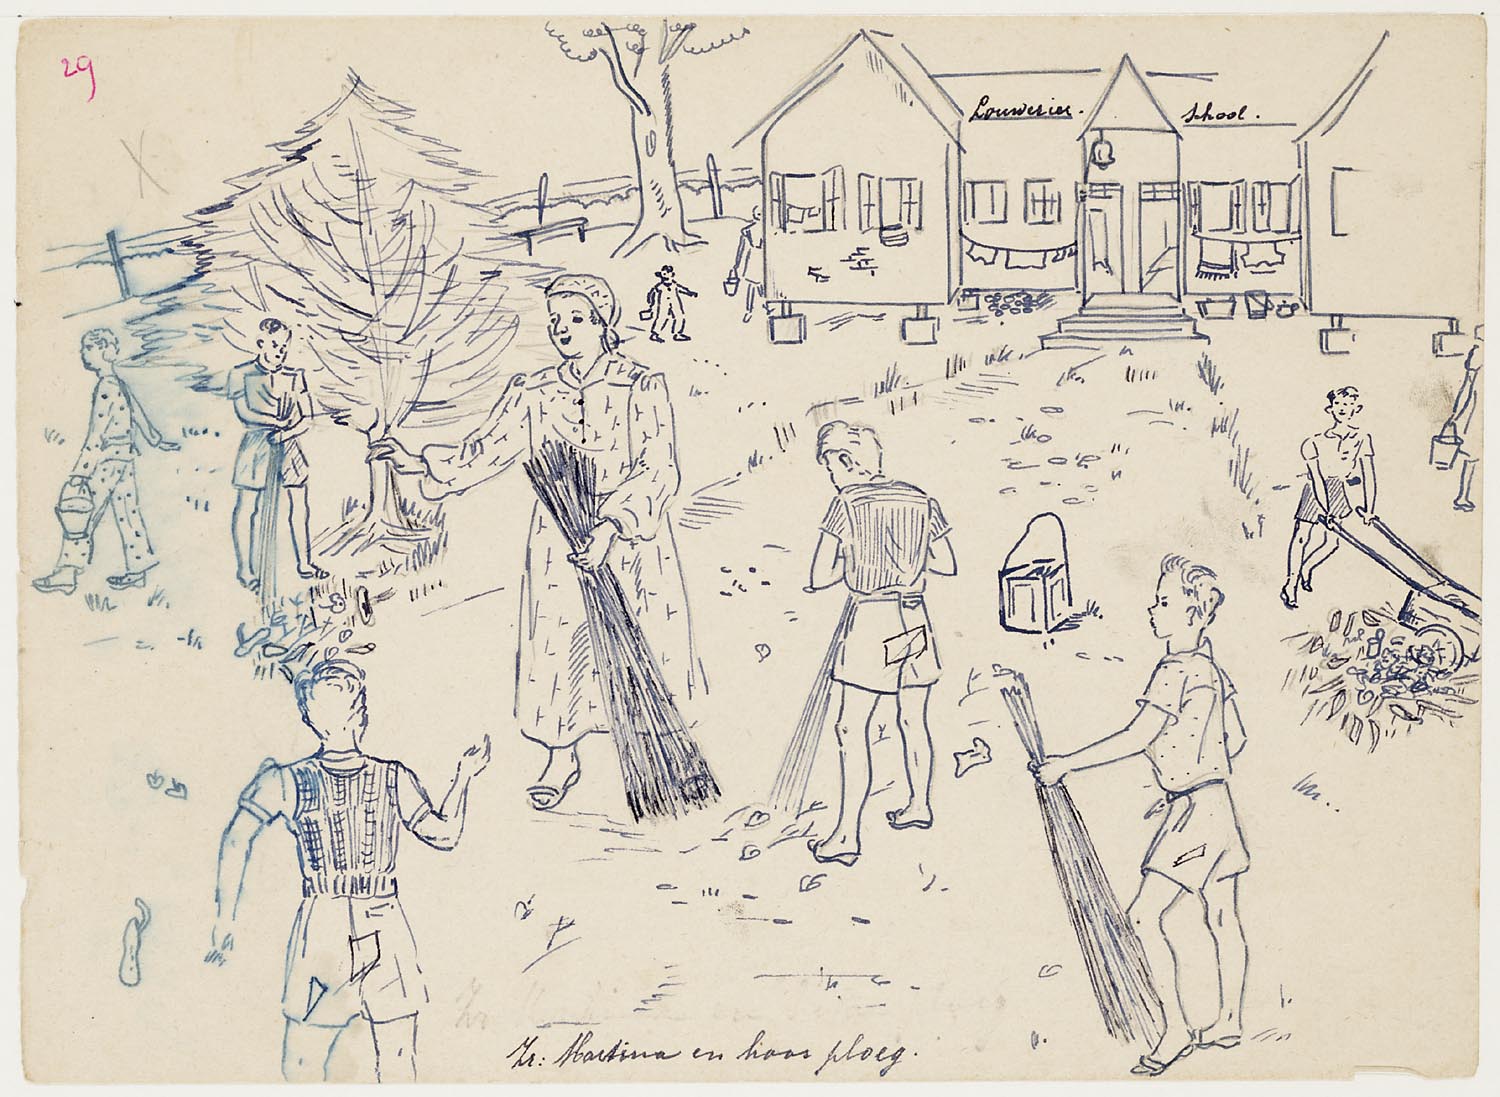 29
Louwerier. School.
Zr: Martina en haar ploeg.